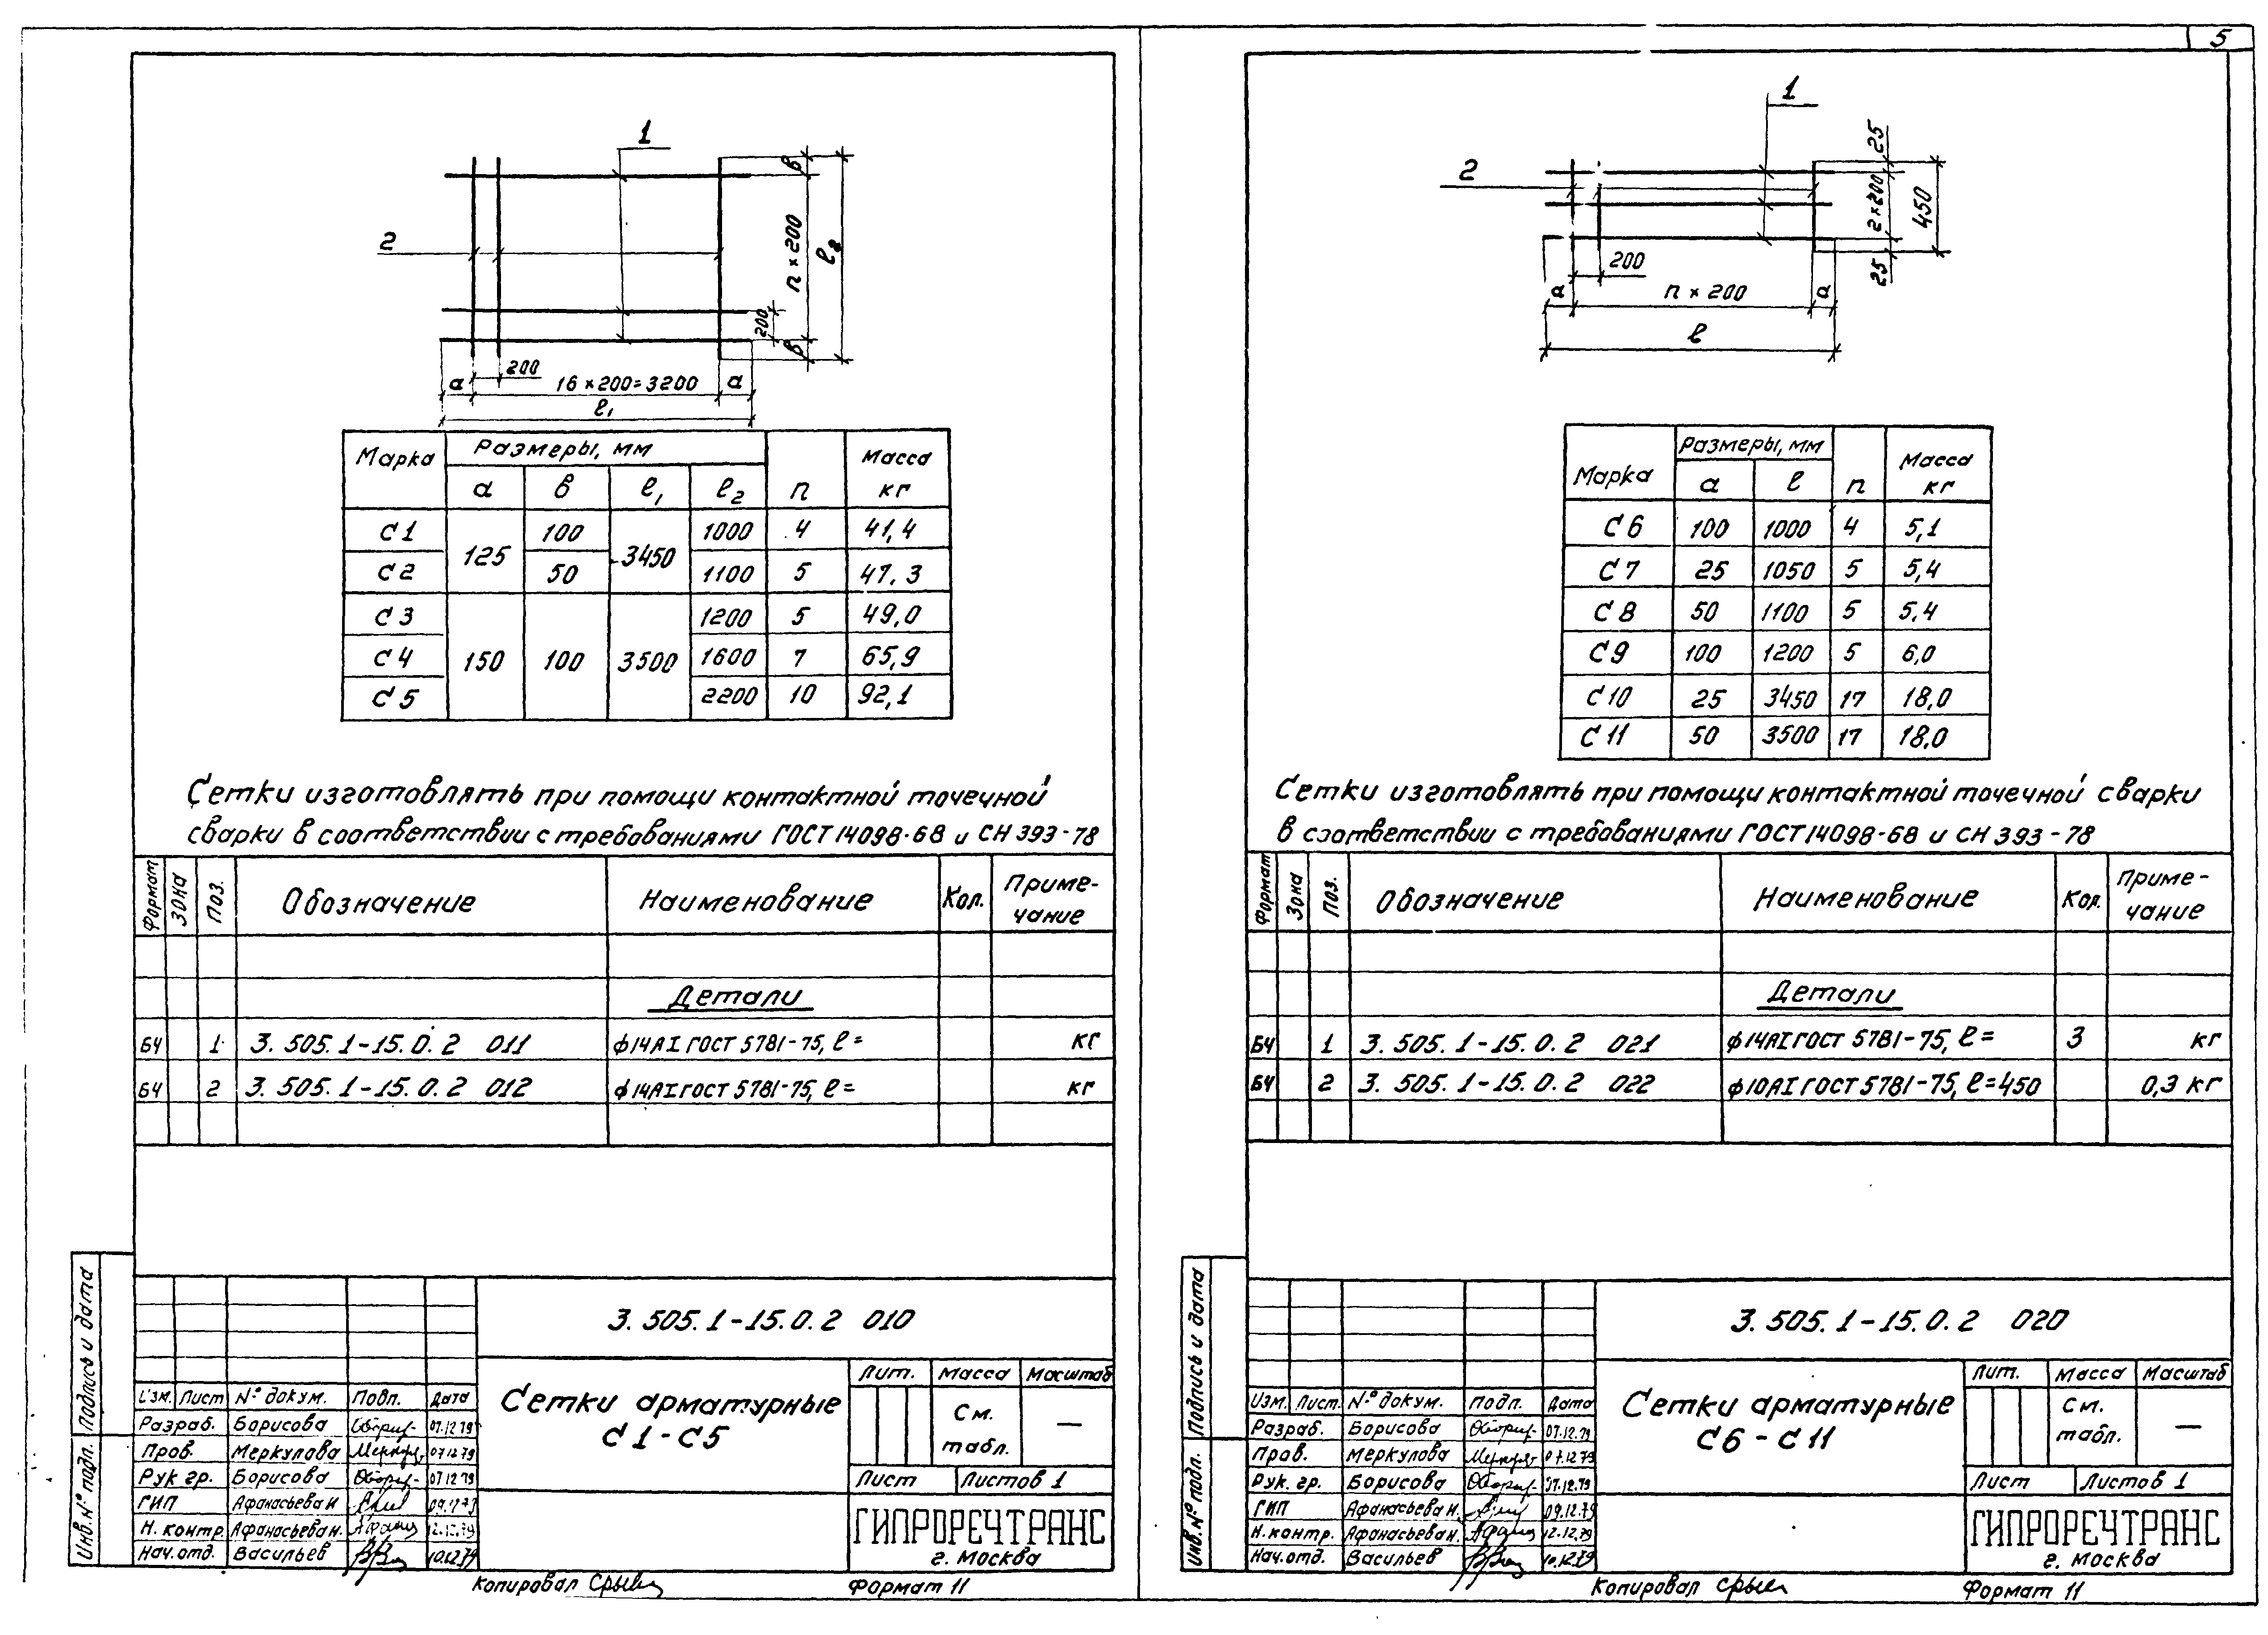 5
1
2
в
n × 200
в
ℓ2
200
200
а
16 × 200=3200
а
ℓ1
Марка Размеры, мм n Масса кг
а в ℓ1 ℓ2
С 1 125 100 3450 1000 4 41,4
С 2 50 1100 5 47,3
С 3 150 100 3500 1200 5 49,0
С 4 1600 7 65,9
С 5 2200 10 92,1
Сетки изготовлять при помощи контактной точечной
сварки в соответствии с требованиями ГОСТ 14098-68 и СН 393-78
Формат Зона Поз. Обозначение Наименование Кол. Приме-
чание
Детали
БЧ 1 3. 505. 1-15. 0. 2 011 ф14АI ГОСТ 5781-75, ℓ= кг
БЧ 2 3. 505. 1-15. 0. 2 012 ф14АI ГОСТ 5781-75, ℓ= кг
Подпись и дата
Инв.№ подл.
3. 505. 1-15. 0. 2 010
Изм. Лист № докум. Подп. Дата
Разраб. Борисова 07.12.79
Пров. Меркулова 07.12.79
Рук гр. Борисова 07.12.79
ГИП Афанасьева Н.
Н. контр. Афанасьева Н. 12.12.79
Нач.отд. Васильев 10.12.79
Сетки арматурные
С 1 - С 5
Лит. Масса Масштаб
См.
табл.
—
Лист Листов 1
ГИПРОРЕЧТРАНС
г. Москва
Копировал
Формат 11
1
2
25
2 × 200
450
25
200
а
n × 200
а
ℓ
Марка Размеры, мм n Масса кг
а ℓ
С 6 100 1000 4 5,1
С 7 25 1050 5 5,4
С 8 50 1100 5 5,4
С 9 100 1200 5 6,0
С 10 25 3450 17 18,0
С 11 50 3500 17 18,0
Сетки изготовлять при помощи контактной точечной сварки
в соответствии с требованиями ГОСТ 14098-68 и СН 393-78
Формат Зона Поз. Обозначение Наименование Кол. Приме-
чание
Детали
БЧ 1 3. 505. 1-15. 0. 2 021 ф14АI ГОСТ 5781-75, ℓ= 3 кг
БЧ 2 3. 505. 1-15. 0. 2 022 ф10АI ГОСТ 5781-75, ℓ=450 0,3 кг
Подпись и дата
Инв.№ подл.
3. 505. 1-15. 0. 2 020
Изм. Лист. № докум. Подп. Дата
Разраб. Борисова 07.12.79
Пров. Меркулова 07.12.79
Рук. гр. Борисова 07.12.79
ГИП Афанасьева Н. 09.12.79
Н.контр. Афанасьева Н. 12.12.79
Нач.отд. Васильев 10.12.79
Сетки арматурные
С 6 - С 11
Лит. Масса Масштаб
См.
табл.
—
Лист Листов 1
ГИПРОРЕЧТРАНС
г. Москва
Копировал
Формат 11